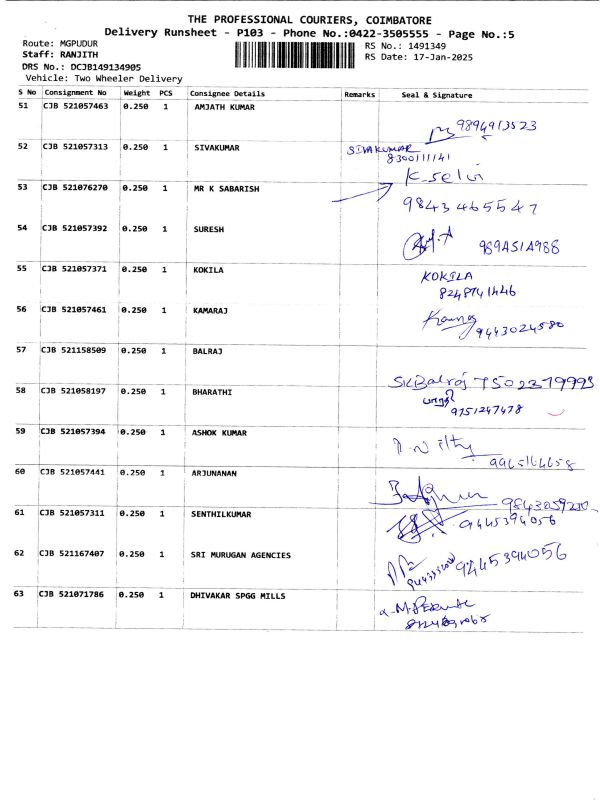 THE PROFESSIONAL COURIERS, COIMBATORE
Delivery Runsheet - P103 - Phone No.:0422-3505555 - Page No.:5
Route: MGPUDUR
RS No.: 1491349
Staff: RANJITH
RS Date: 17-Jan-2025
DRS No.: DCJB149134905
Vehicle: Two Wheeler Delivery
S No Consignment No Weight PCS Consignee Details Remarks Seal & Signature
51 CJB 521057463 0.250 1 AMJATH KUMAR
9894913523
52 CJB 521057313 0.250 1 SIVAKUMAR SIVAKUMAR
8300111141
K. selvi
53 CJB 521076270 0.250 1 MR K SABARISH
9843465547
54 CJB 521057392 0.250 1 SURESH
989A51A988
55 CJB 521057371 0.250 1 KOKILA KOKILA
8248741446
56 CJB 521057461 0.250 1 KAMARAJ
9443024580
57 CJB 521158509 0.250 1 BALRAJ
S.K.Balraj 7502379993
58 CJB 521058197 0.250 1 BHARATHI
9751247478
59 CJB 521057394 0.250 1 ASHOK KUMAR
60 CJB 521057441 0.250 1 ARJUNANAN
61 CJB 521057311 0.250 1 SENTHILKUMAR
9445394056
62 CJB 521167407 0.250 1 SRI MURUGAN AGENCIES
9445394056
63 CJB 521071786 0.250 1 DHIVAKAR SPGG MILLS